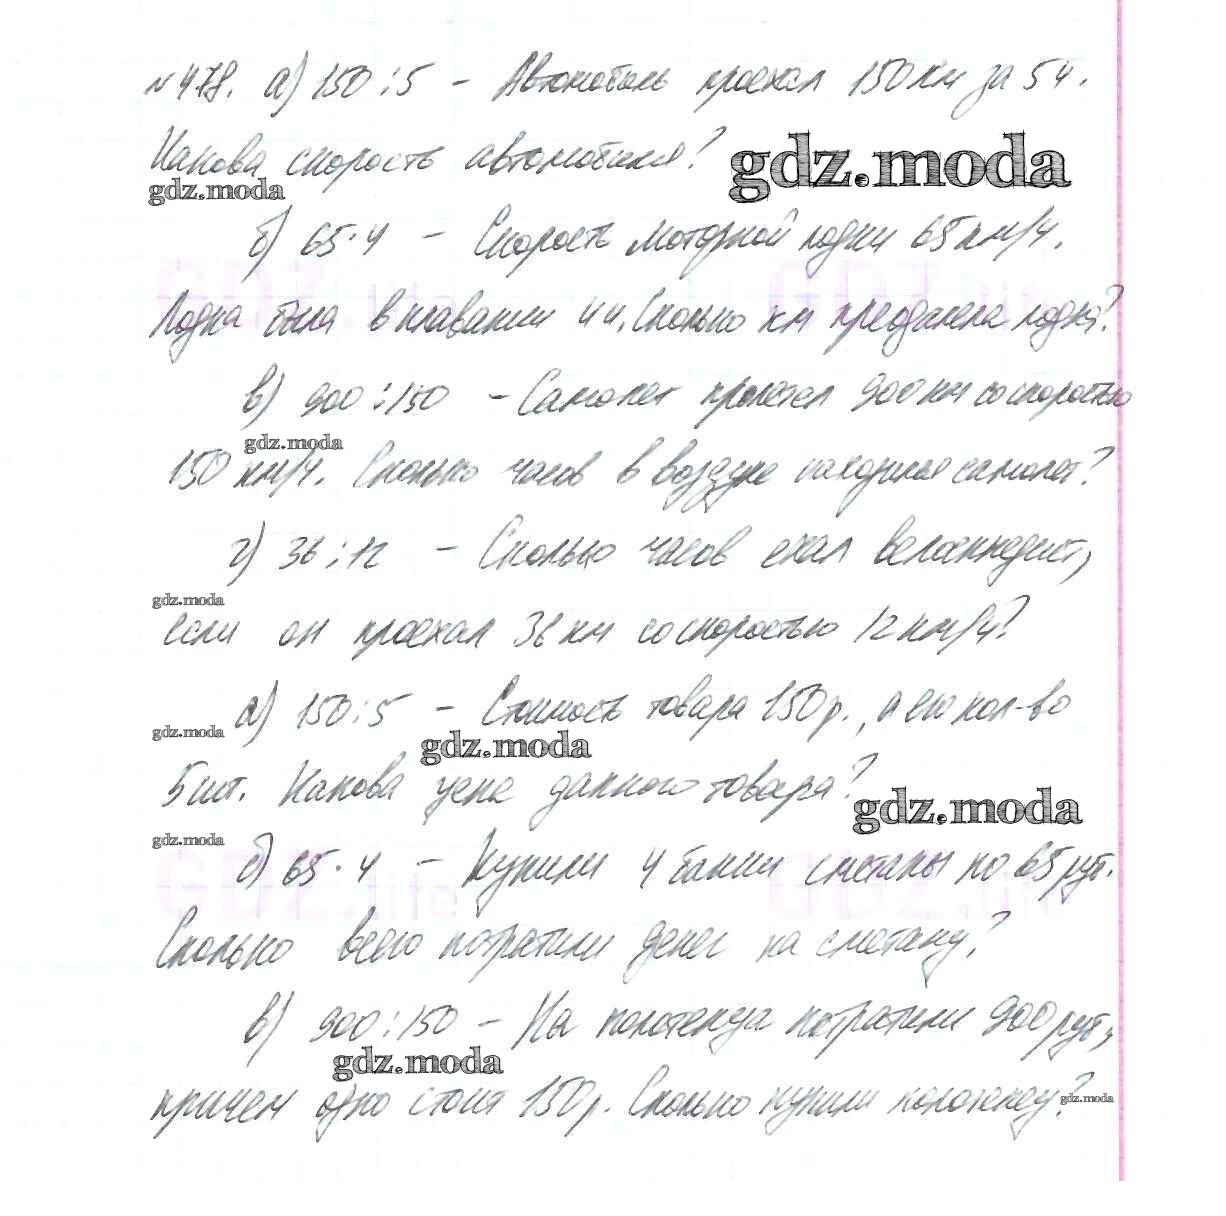 №478. а) 150 : 5 – Автомобиль проехал 150 км за 5 ч.
Какова скорость автомобиля?
gdz.moda
gdz.moda
б) 65 · 4 – Скорость моторной лодки 65 км/ч.
Лодка была в плавании 4 ч. Сколько км преодолела лодка?
в) 900 : 150 – Самолет пролетел 900 км со скоростью
gdz.moda
150 км/ч. Сколько часов в воздухе находился самолет?
г) 36 : 12 – Сколько часов ехал велосипедист,
gdz.moda
если он проехал 36 км со скоростью 12 км/ч?
а) 150 : 5 – Стоимость товара 150 р., а его кол-во
gdz.moda
gdz.moda
5 шт. Какова цена данного товара?
gdz.moda
gdz.moda
б) 65 · 4 – Купили 4 банки сметаны по 65 руб.
GDZ.life
GDZ.life
Сколько всего потратили денег на сметану?
в) 900 : 150 – На полотенца потратили 900 руб,
gdz.moda
причем одно стоит 150 р. Сколько купили полотенец?
gdz.moda